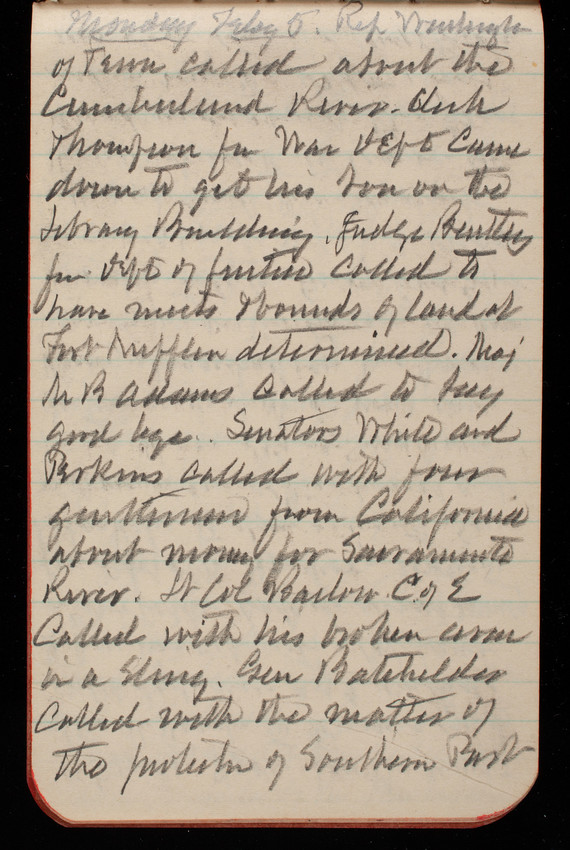 Monday Feby 5. Rep Washington
of Tenn called about the
Cumberland River. Clerk
Thompson fm War Dept came
down to get his son on the
Library Building. Judge Bentley
fm Dept of Justice called to
have meets & bounds of land at
Fort Mifflin determined. Maj
M B Adams called to say
good bye. Senators White and
Perkins called with four
gentlemen from California
about money for Sacramento
River. Lt Col Barlow C. of E
called with his broken arm
in a sling. Gen Batchelder
called with the matter of
the protectn of Southern Part